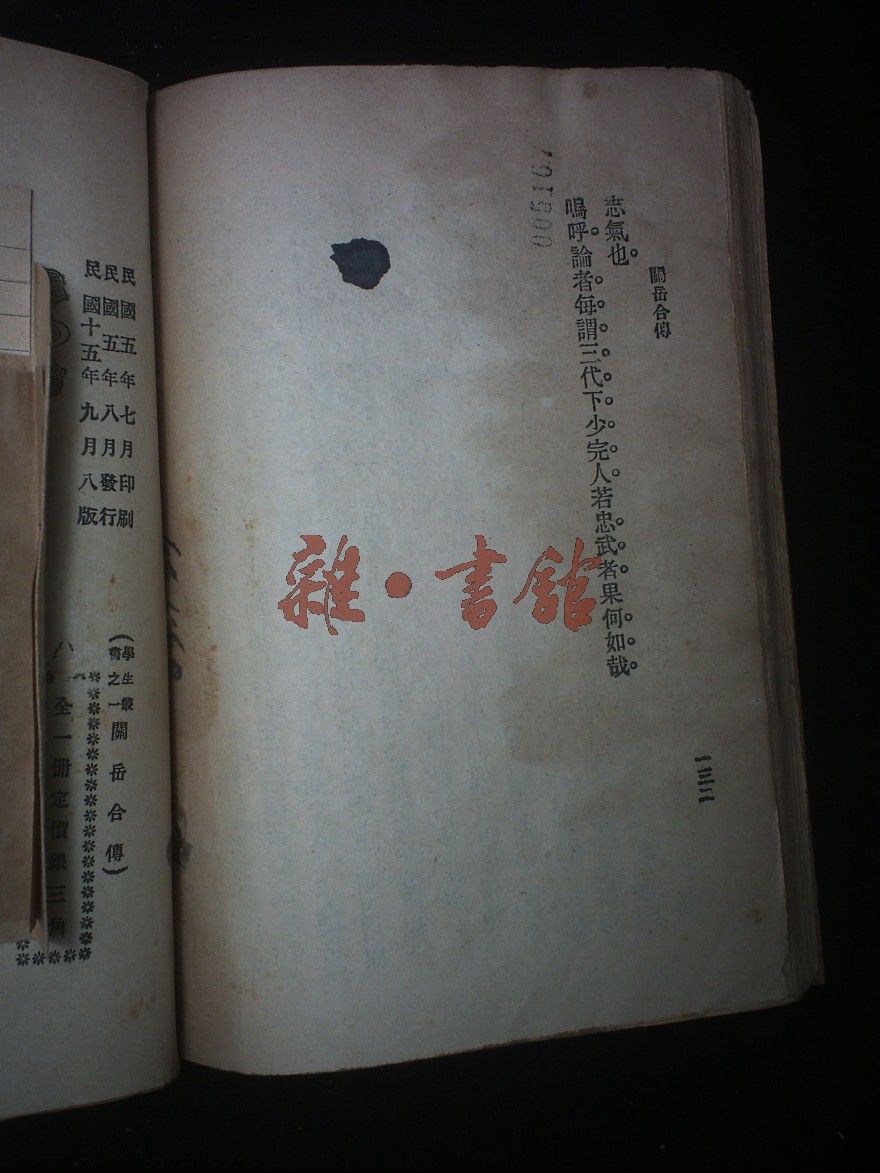 關岳合傳
志氣也。
嗚呼。論者。每。謂。三。代。下。少。完。人。若忠。武。者。果何。如。哉。
一三二
0015107
雜·書館
民國五年七月印刷
民國五年八月發行
民國十五年九月八版
(學生叢書之一關岳合傳)
全一冊定價銀三角